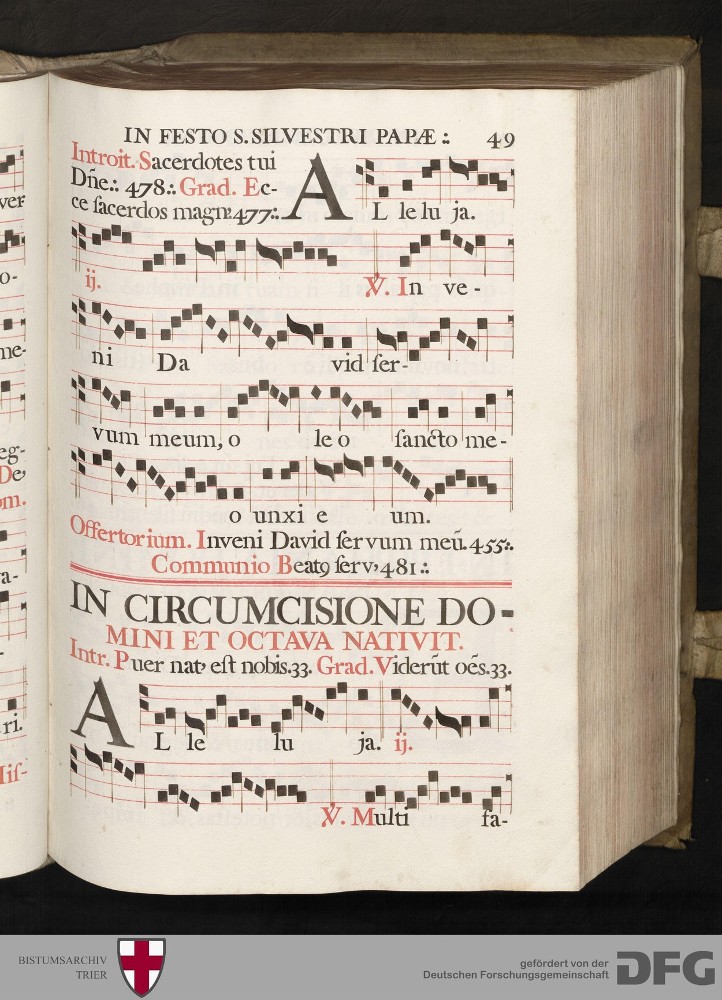 IN FESTO S. SILVESTRI PAPÆ : 49
Introit. Sacerdotes tui
Dn̄e.: 478.: Grad. Ec-
ce sacerdos magn: 477.:
AL le lu ja.
ij. V. In ve-
ni Da vid ser-
vum meum, o le o sancto me-
o unxi e um.
Offertorium. Inveni David servum meū. 455:.
Communio Beatꝯ serv, 481.:
IN CIRCUMCISIONE DO-
MINI ET OCTAVA NATIVIT.
Intr. Puer nat, est nobis. 33. Grad. Viderūt oēs. 33.
AL le lu ja. ij.
V. Multi fa-
ver
o-
me-
eg-
De,
om.
a-
ri.
Mis-
BISTUMSARCHIV
TRIER
gefördert von der
Deutschen Forschungsgemeinschaft
DFG